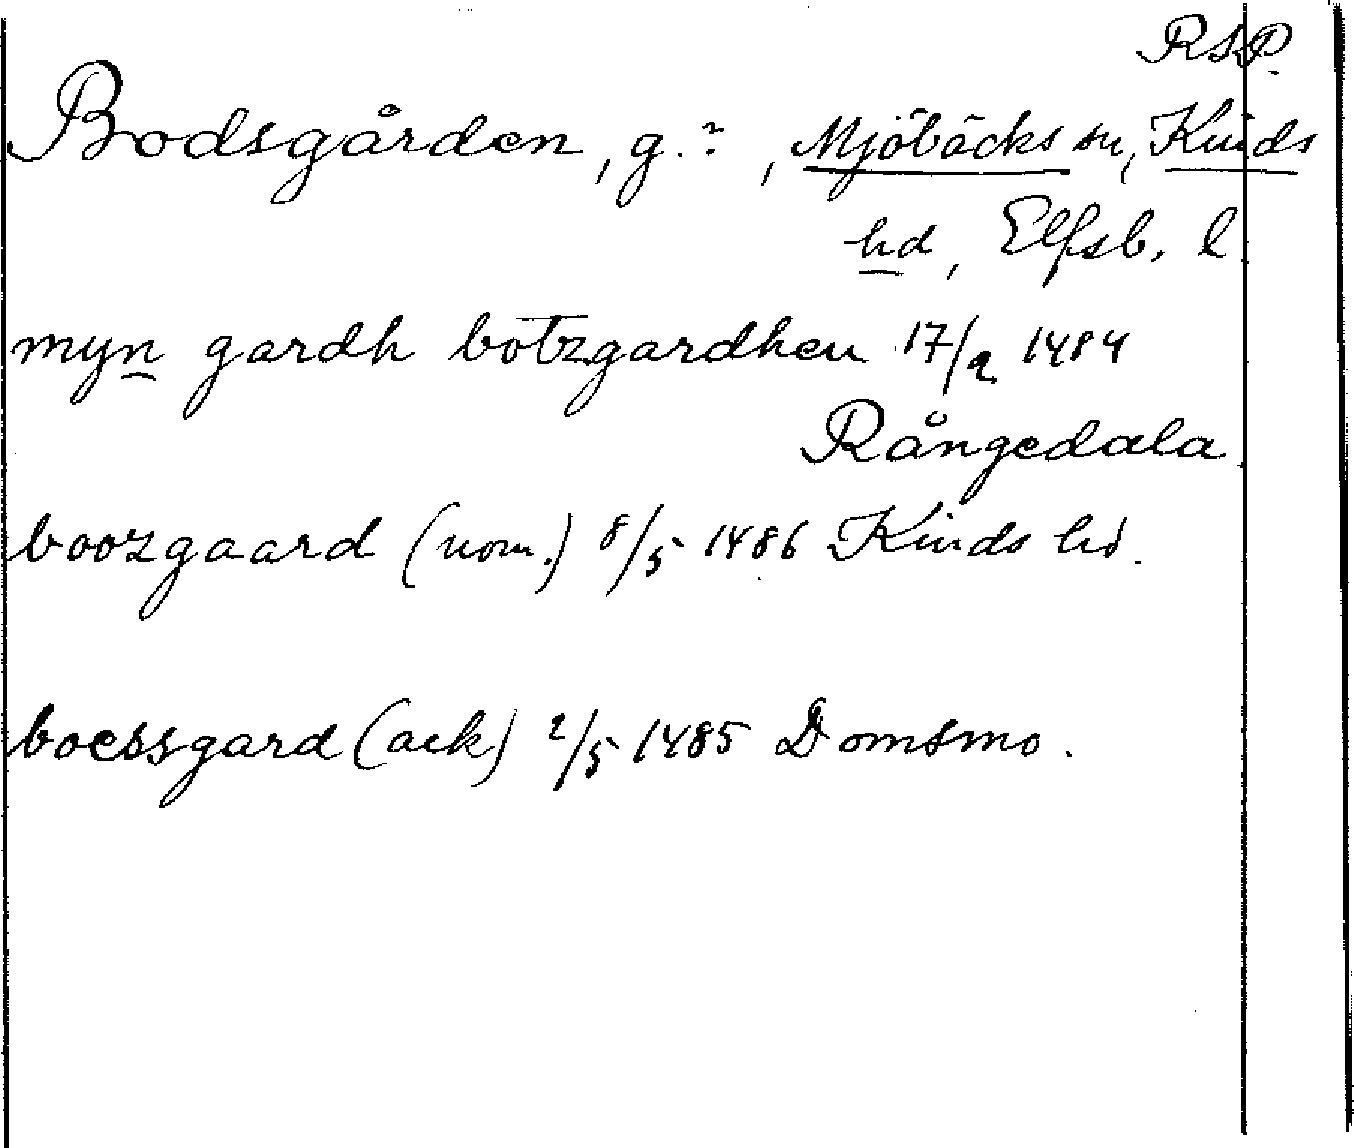 RSP.
Bodsgården, g.?, Mjöbäcks sn, Kinds
hd, Elfsb. l
myn gardh botzgardhen 17/9 1484
Rångedala
boozgaard (nom.) 8/5 1486 Kinds hd.
boessgard (ack) 2/5 1485 Domsmo.